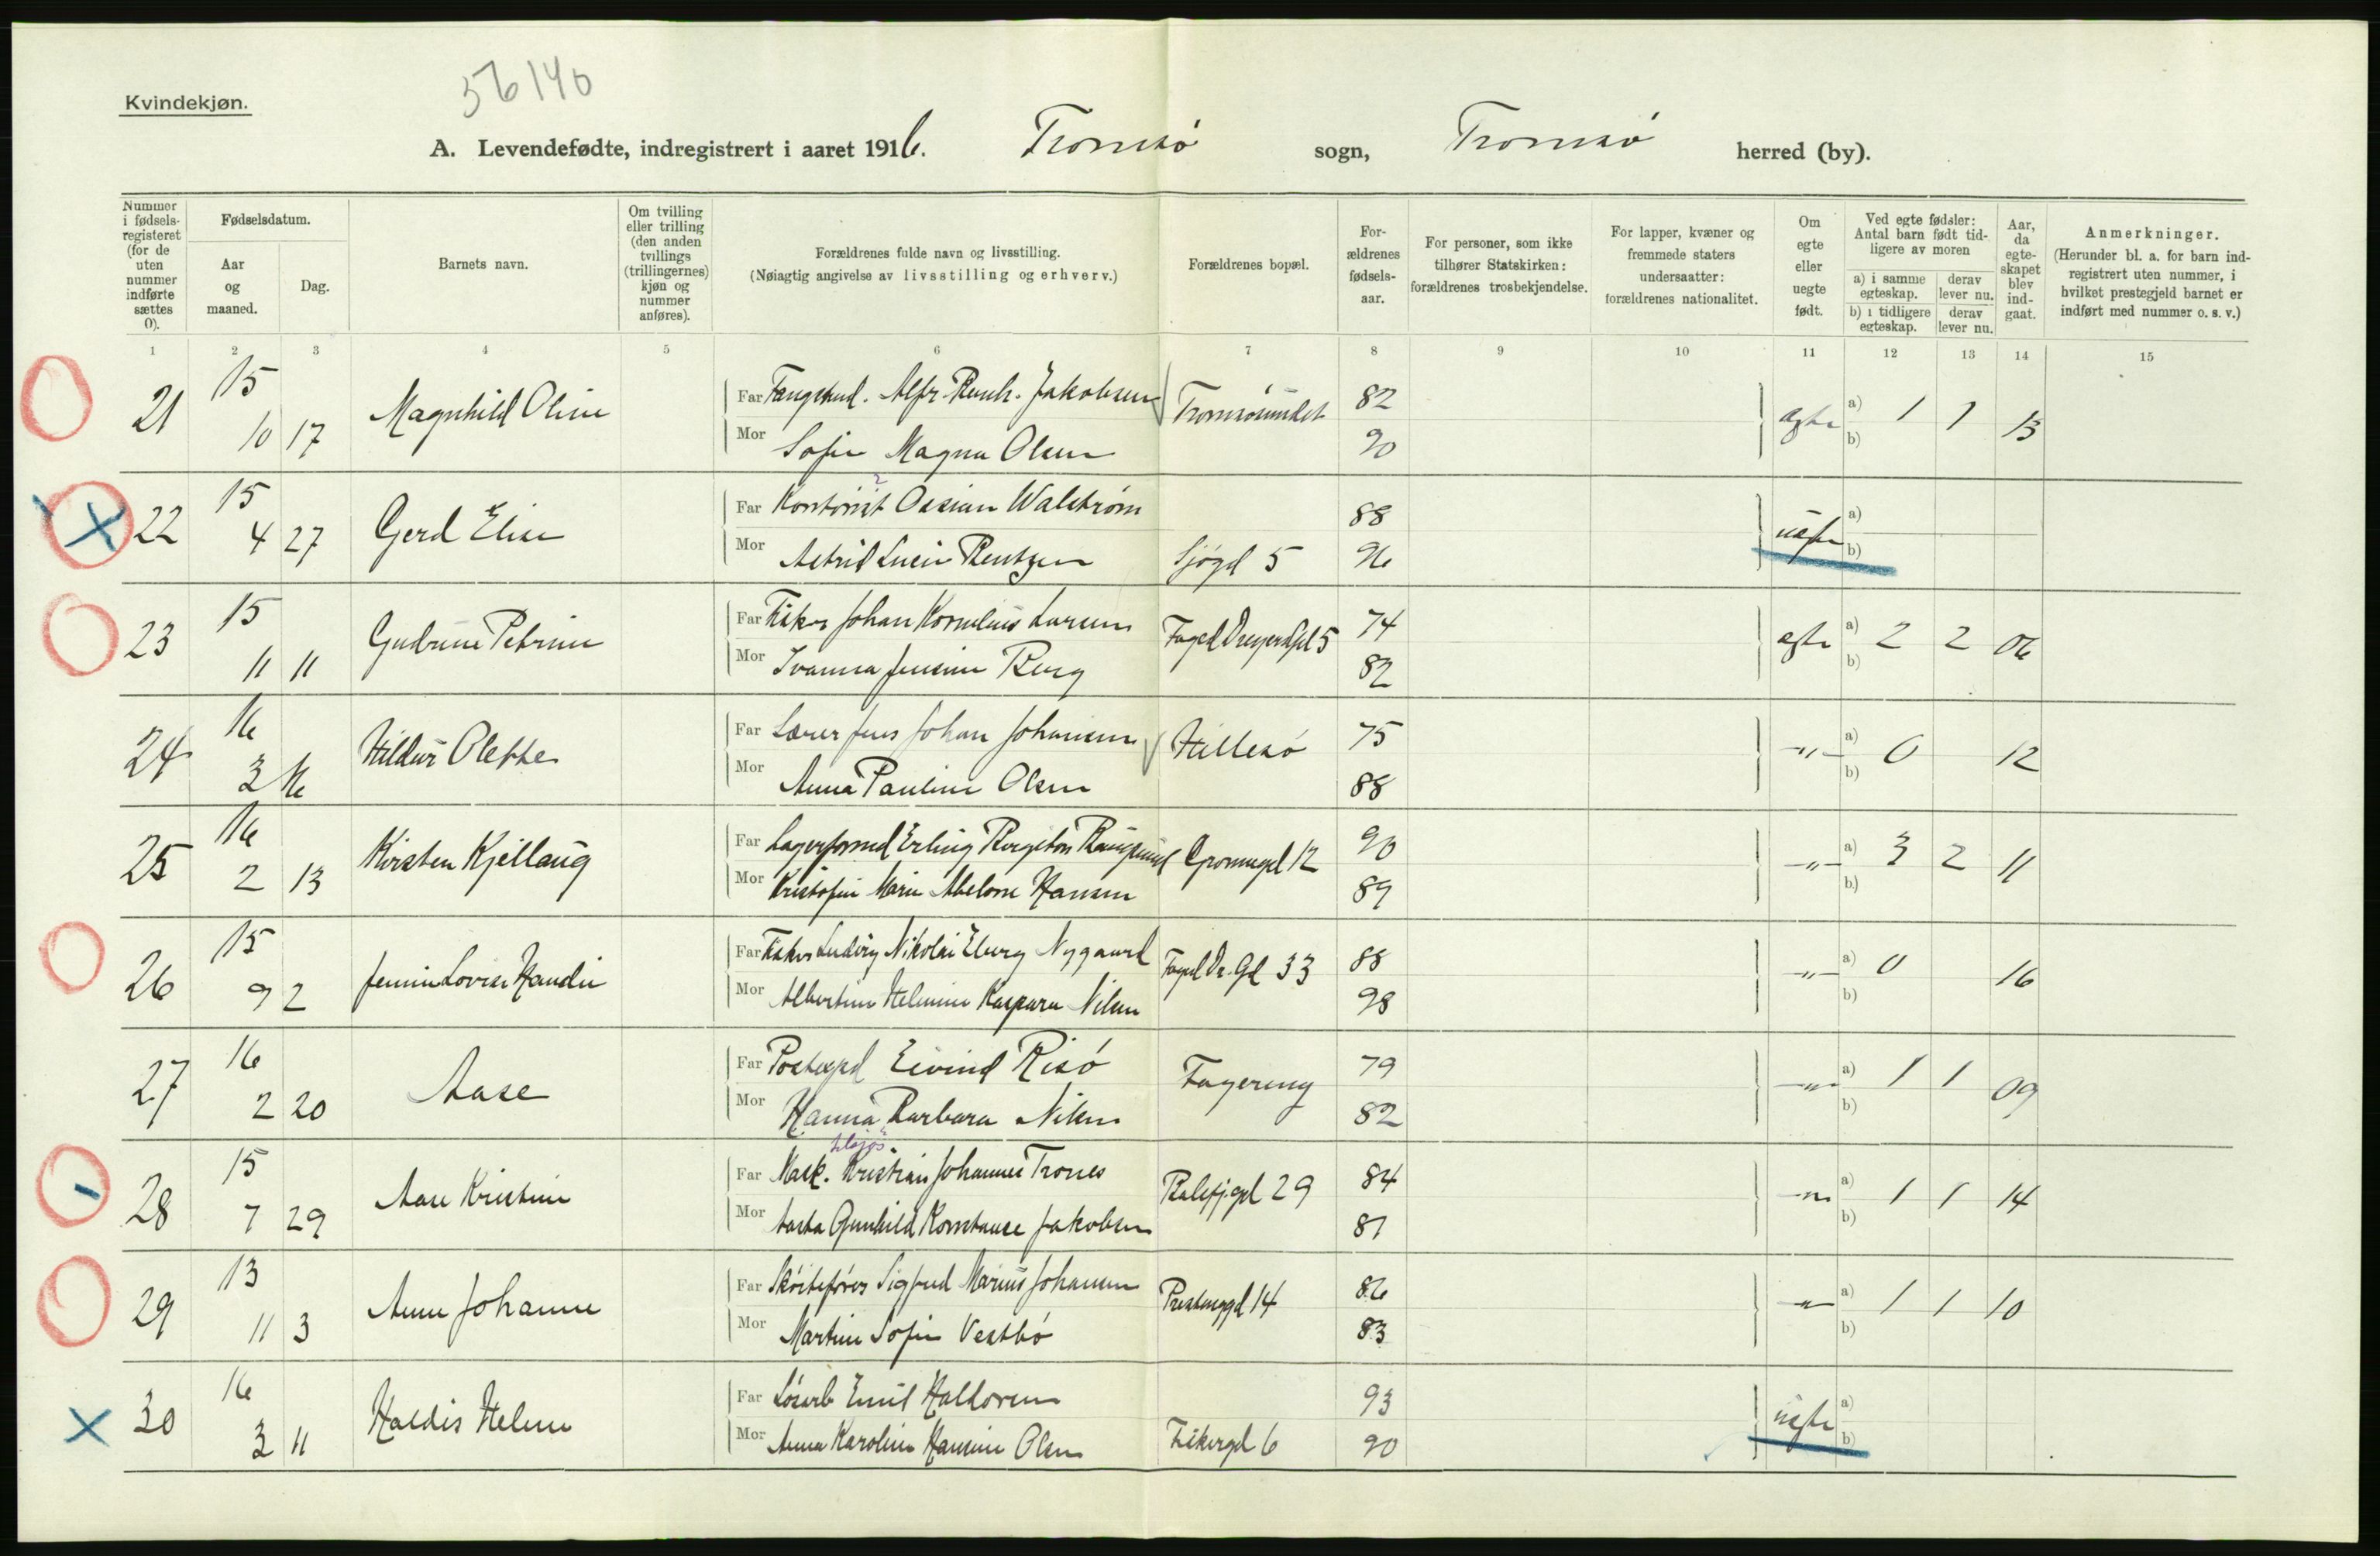 Kvindekjøn.
56140
A. Levendefødte, indregistrert i aaret 1916. Tromsø sogn, Tromsø herred (by).
Nummer i fødsels-registeret (for de uten nummer indførte sættes 0).
Fødselsdatum.
Aar og maaned.
Dag.
Barnets navn.
Om tvilling eller trilling (den anden tvillings (trillingernes) kjøn og nummer anføres).
Forældrenes fulde navn og livsstilling.
(Nøiagtig angivelse av livsstilling og erhverv.)
Forældrenes bopæl.
For-ældrenes fødsels-aar.
For personer, som ikke tilhører Statskirken: forældrenes trosbekjendelse.
For lapper, kvæner og fremmede staters undersaatter: forældrenes nationalitet.
Om egte eller uegte født.
Ved egte fødsler: Antal barn født tid-ligere av moren
a) i samme egteskap.
derav lever nu.
b) i tidligere egteskap.
derav lever nu.
Aar, da egte-skapet blev ind-gaat.
Anmerkninger.
(Herunder bl. a. for barn ind-registrert uten nummer, i hvilket prestegjeld barnet er indført med nummer o. s. v.)
1 2 3 4 5 6 7 8 9 10 11 12 13 14 15
21 15 10 17 Magnhild Oline Far Jakobsen Tromsøsundet 82 egte a) 1 1 13
Mor Sofie Magna Olsen 90 b)
22 15 4 27 Gerd Elise Far Kontorist Ossian Walstrøm 88 uegte a)
Mor Astrid Lucie Bentzen Sjøgd 5 96 b)
23 15 11 11 Gudrun Petrine Far Fisker Johan Kornelius Larsen 74 egte a) 2 2 06
Mor Ivanna Jensine Berg 82 b)
24 16 3 16 Hildur Olette Far Lærer Jens Johan Johansen Hillesø 75 -"- a) 0 12
Mor Anna Pauline Olsen 88 b)
25 16 2 13 Kirsten Kjellaug Far Erling Grønnegd 12 90 -"- a) 3 2 11
Mor Kristofine Marie Abelone Hansen 89 b)
26 15 9 2 Jennie Lovise Haudie Far Fisker Ludvig Nikolai Eberg Nygaard 33 88 -"- a) 0 16
Mor Albertine Helmine Kaspara Nilsen 98 b)
27 16 2 20 Aase Far Postexpd Eivind Risø Fagereng 79 -"- a) 1 1 09
Mor Hanna Barbara Nilsen 82 b)
28 15 7 29 Aase Kristine Far Mask. Kristian Johannes Trones 29 84 -"- a) 1 1 14
Mor Aasta Gunhild Konstanse Jakobsen 87 b)
29 13 11 3 Anne Johanne Far Skøitefører Sigfred Marius Johansen 14 86 -"- a) 1 1 10
Mor Martine Sofie Vestbø 83 b)
30 16 3 11 Haldis Helene Far Løsarb Emil Halvorsen 93 uegte a)
Mor Anna Karoline Hansine Olsen Fiskergd 6 90 b)